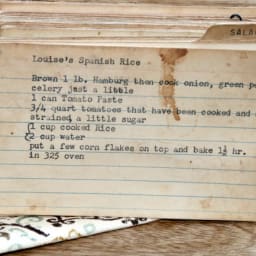 SALA
Louise's Spanish Rice
Brown 1 lb. Hamburg then cook onion, green pe
celery just a little
1 can Tomato Paste
3/4 quart tomatoes that have been cooked and
strained, a little sugar
1 cup cooked Rice
2 cup water
put a few corn flakes on top and bake 1½ hr.
in 325 oven